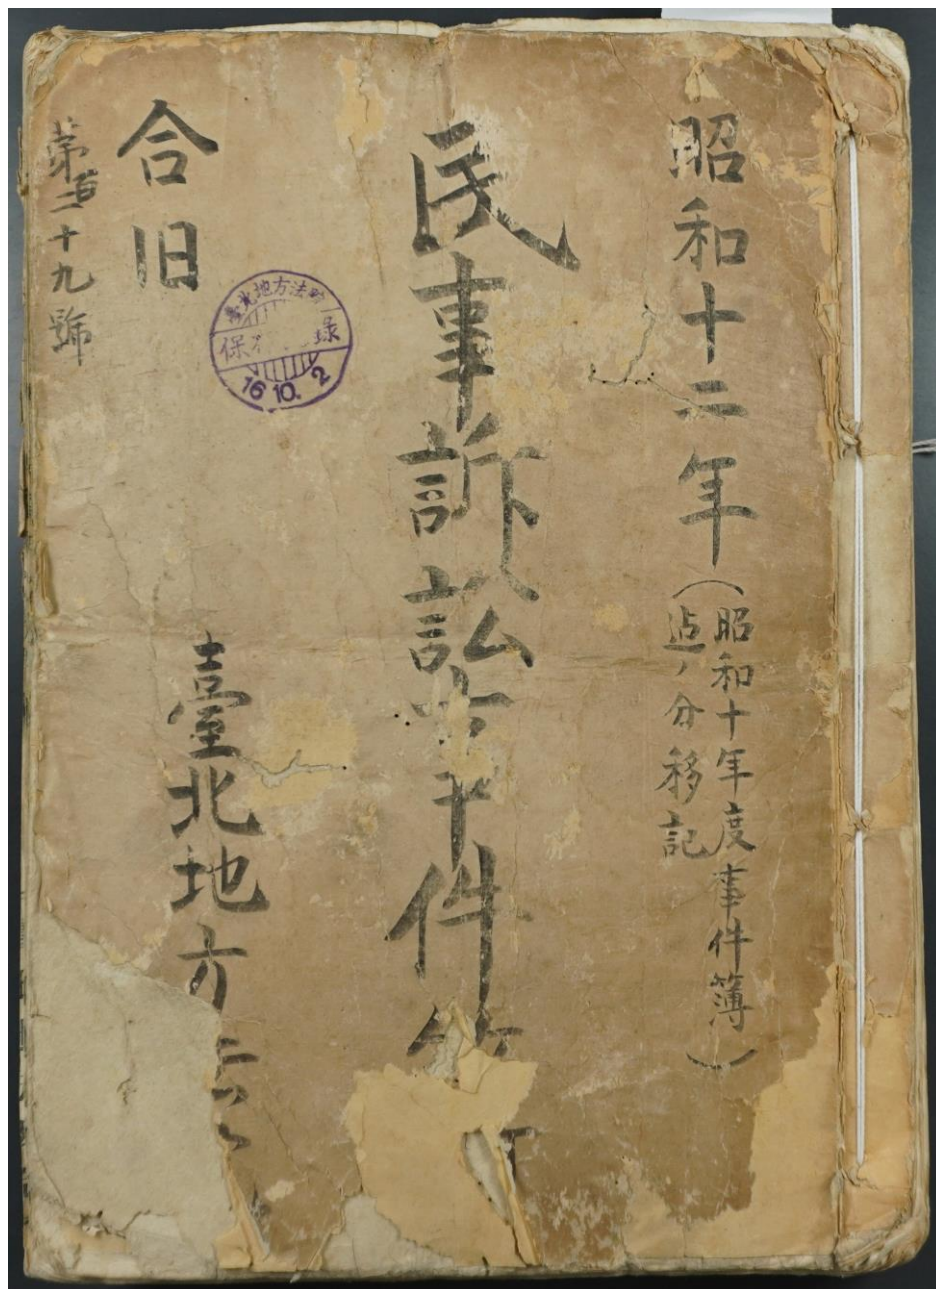 昭和十二年
(昭和十年度事件簿
迠ノ分移記)
民事訴訟事件
臺北地方
合旧
第百二十九號
臺北地方法
保
16.10.2